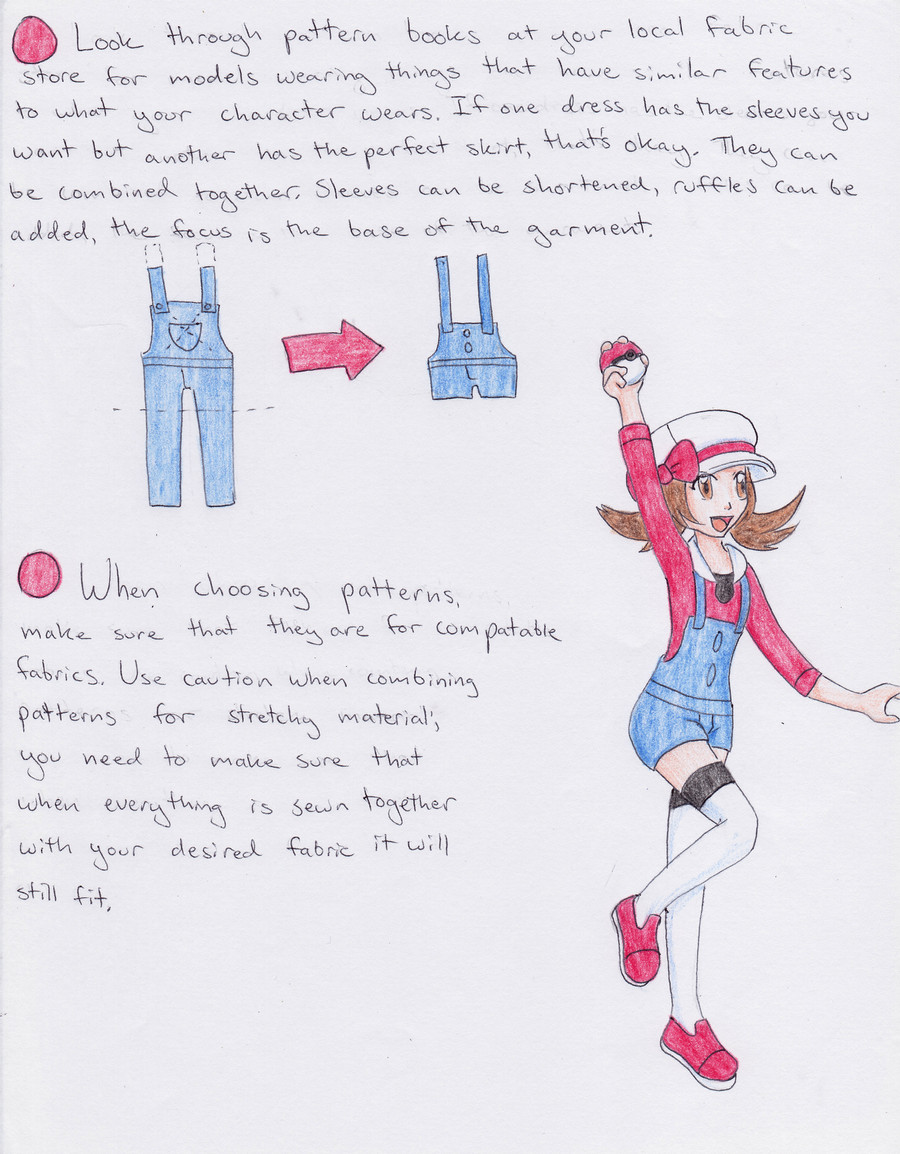 Look through pattern books at your local fabric
store for models wearing things that have similar features
to what your character wears. If one dress has the sleeves you
want but another has the perfect skirt, that's okay. They can
be combined together. Sleeves can be shortened, ruffles can be
added, the focus is the base of the garment.
When choosing patterns,
make sure that they are for compatable
fabrics. Use caution when combining
patterns for stretchy material,
you need to make sure that
when everything is sewn together
with your desired fabric it will
still fit.